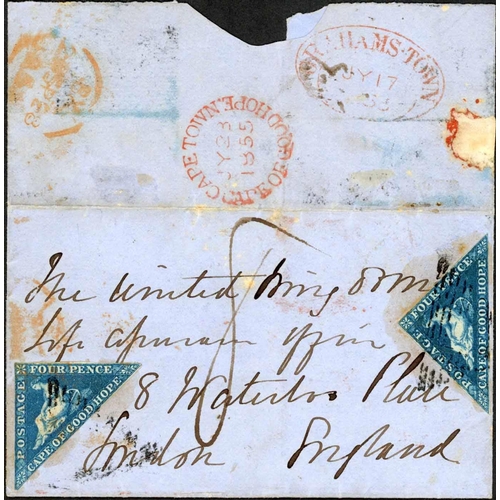 GRAHAMS-TOWN
JY 17
CAPE TOWN. CAPE OF GOOD HOPE.
JY 23
1855
The United Kingdom
Life Assurance Office
8 Waterloo Place
London England
POSTAGE
FOUR PENCE
CAPE OF GOOD HOPE
POSTAGE
FOUR PENCE
CAPE OF GOOD HOPE